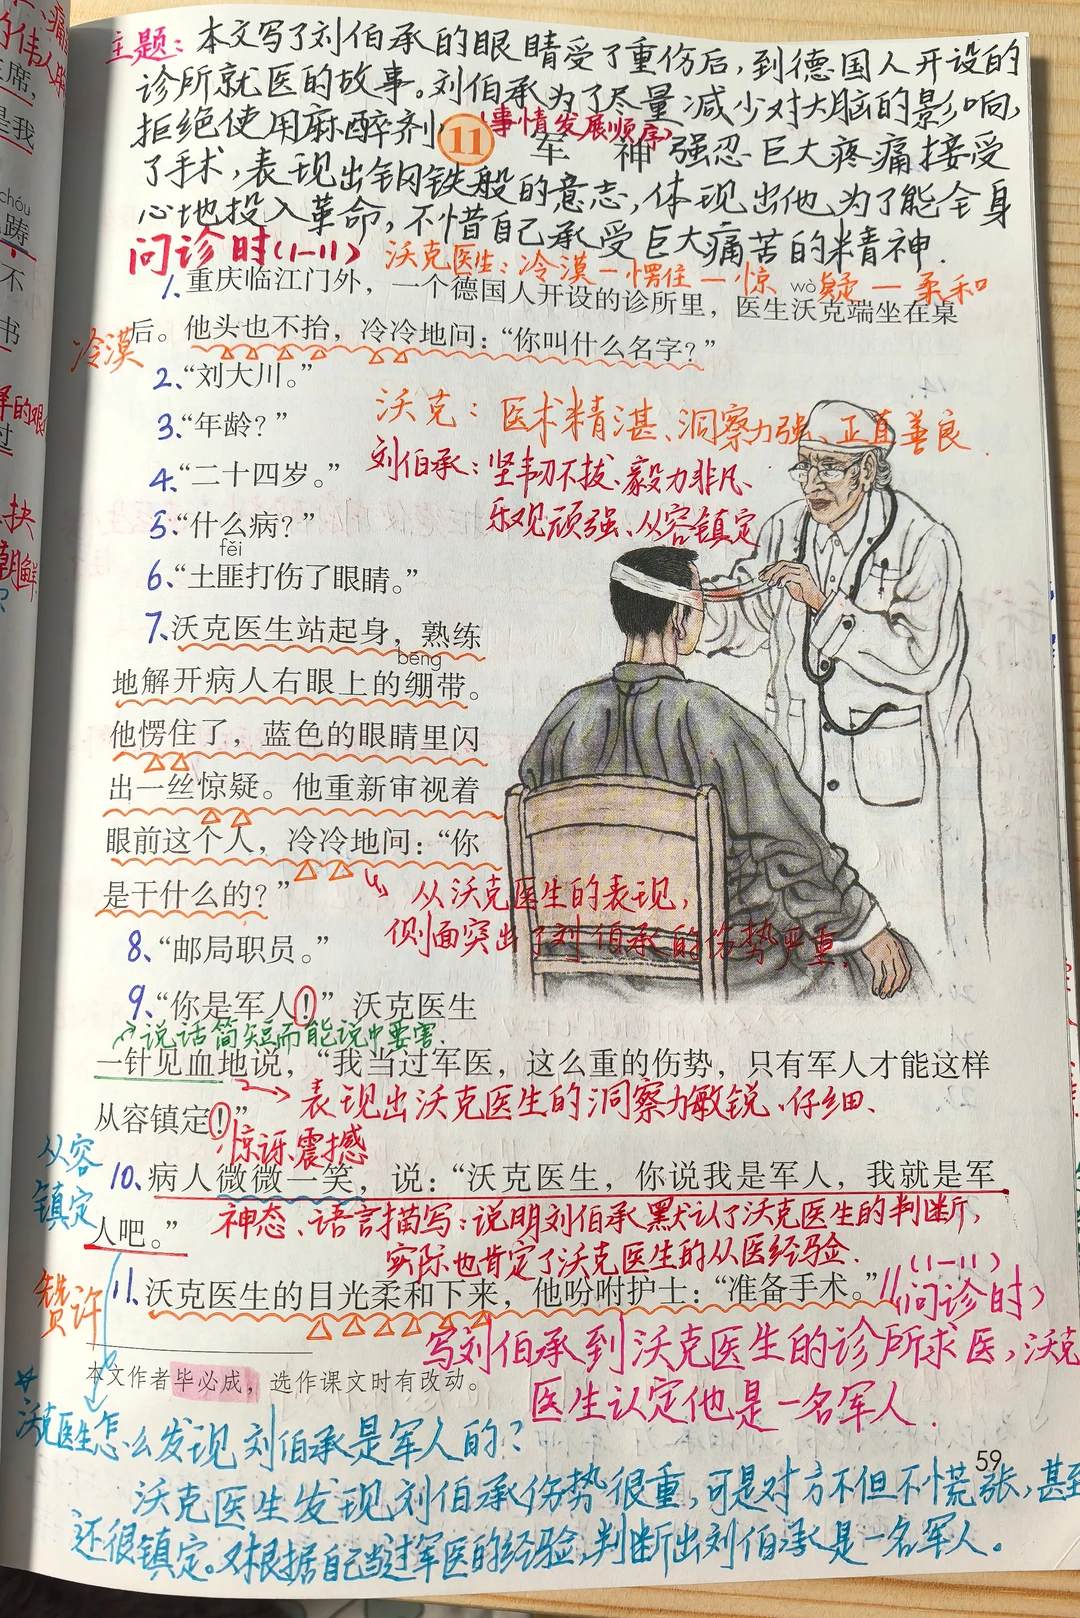 主题：本文写了刘伯承的眼睛受了重伤后，到德国人开设的
诊所就医的故事。刘伯承为了尽量减少对大脑的影响，
拒绝使用麻醉剂，
（事情发展顺序）
11 军神
强忍巨大疼痛接受
了手术，表现出钢铁般的意志，体现出他为了能全身
心地投入革命，不惜自己承受巨大痛苦的精神．
问诊时（1—11）
沃克医生：冷漠—愣住—惊疑—柔和
wò
1、重庆临江门外，一个德国人开设的诊所里，医生沃克端坐在桌
冷漠
后。他头也不抬，冷冷地问：“你叫什么名字？”
2、“刘大川。”
3、“年龄？”
沃克：医术精湛、洞察力强、正直善良．
4、“二十四岁。”
刘伯承：坚韧不拔、毅力非凡、
乐观顽强、从容镇定
5、“什么病？”
fěi
6、“土匪打伤了眼睛。”
7、沃克医生站起身，熟练
bēng
地解开病人右眼上的绷带。
他愣住了，蓝色的眼睛里闪
出一丝惊疑。他重新审视着
眼前这个人，冷冷地问：“你
是干什么的？”
从沃克医生的表现，
侧面突出了刘伯承的伤势严重．
8、“邮局职员。”
9、“你是军人！”沃克医生
说话简短而能说中要害．
一针见血地说，“我当过军医，这么重的伤势，只有军人才能这样
表现出沃克医生的洞察力敏锐、仔细、
从容镇定！”
惊讶、震撼
从容
镇定
10、病人微微一笑，说：“沃克医生，你说我是军人，我就是军
人吧。”
神态、语言描写：说明刘伯承默认了沃克医生的判断，
实际也肯定了沃克医生的从医经验．
赞许
11、沃克医生的目光柔和下来，他吩咐护士：“准备手术。”//
（1—11）
（问诊时）
写刘伯承到沃克医生的诊所求医，沃克
医生认定他是一名军人．
本文作者毕必成，选作课文时有改动。
沃克医生怎么发现刘伯承是军人的？
59
沃克医生发现刘伯承伤势很重，可是对方不但不慌张，甚至
还很镇定。又根据自己当过军医的经验，判断出刘伯承是一名军人。
chóu
踌
不
书
过
抉
朝鲜
席，
是我